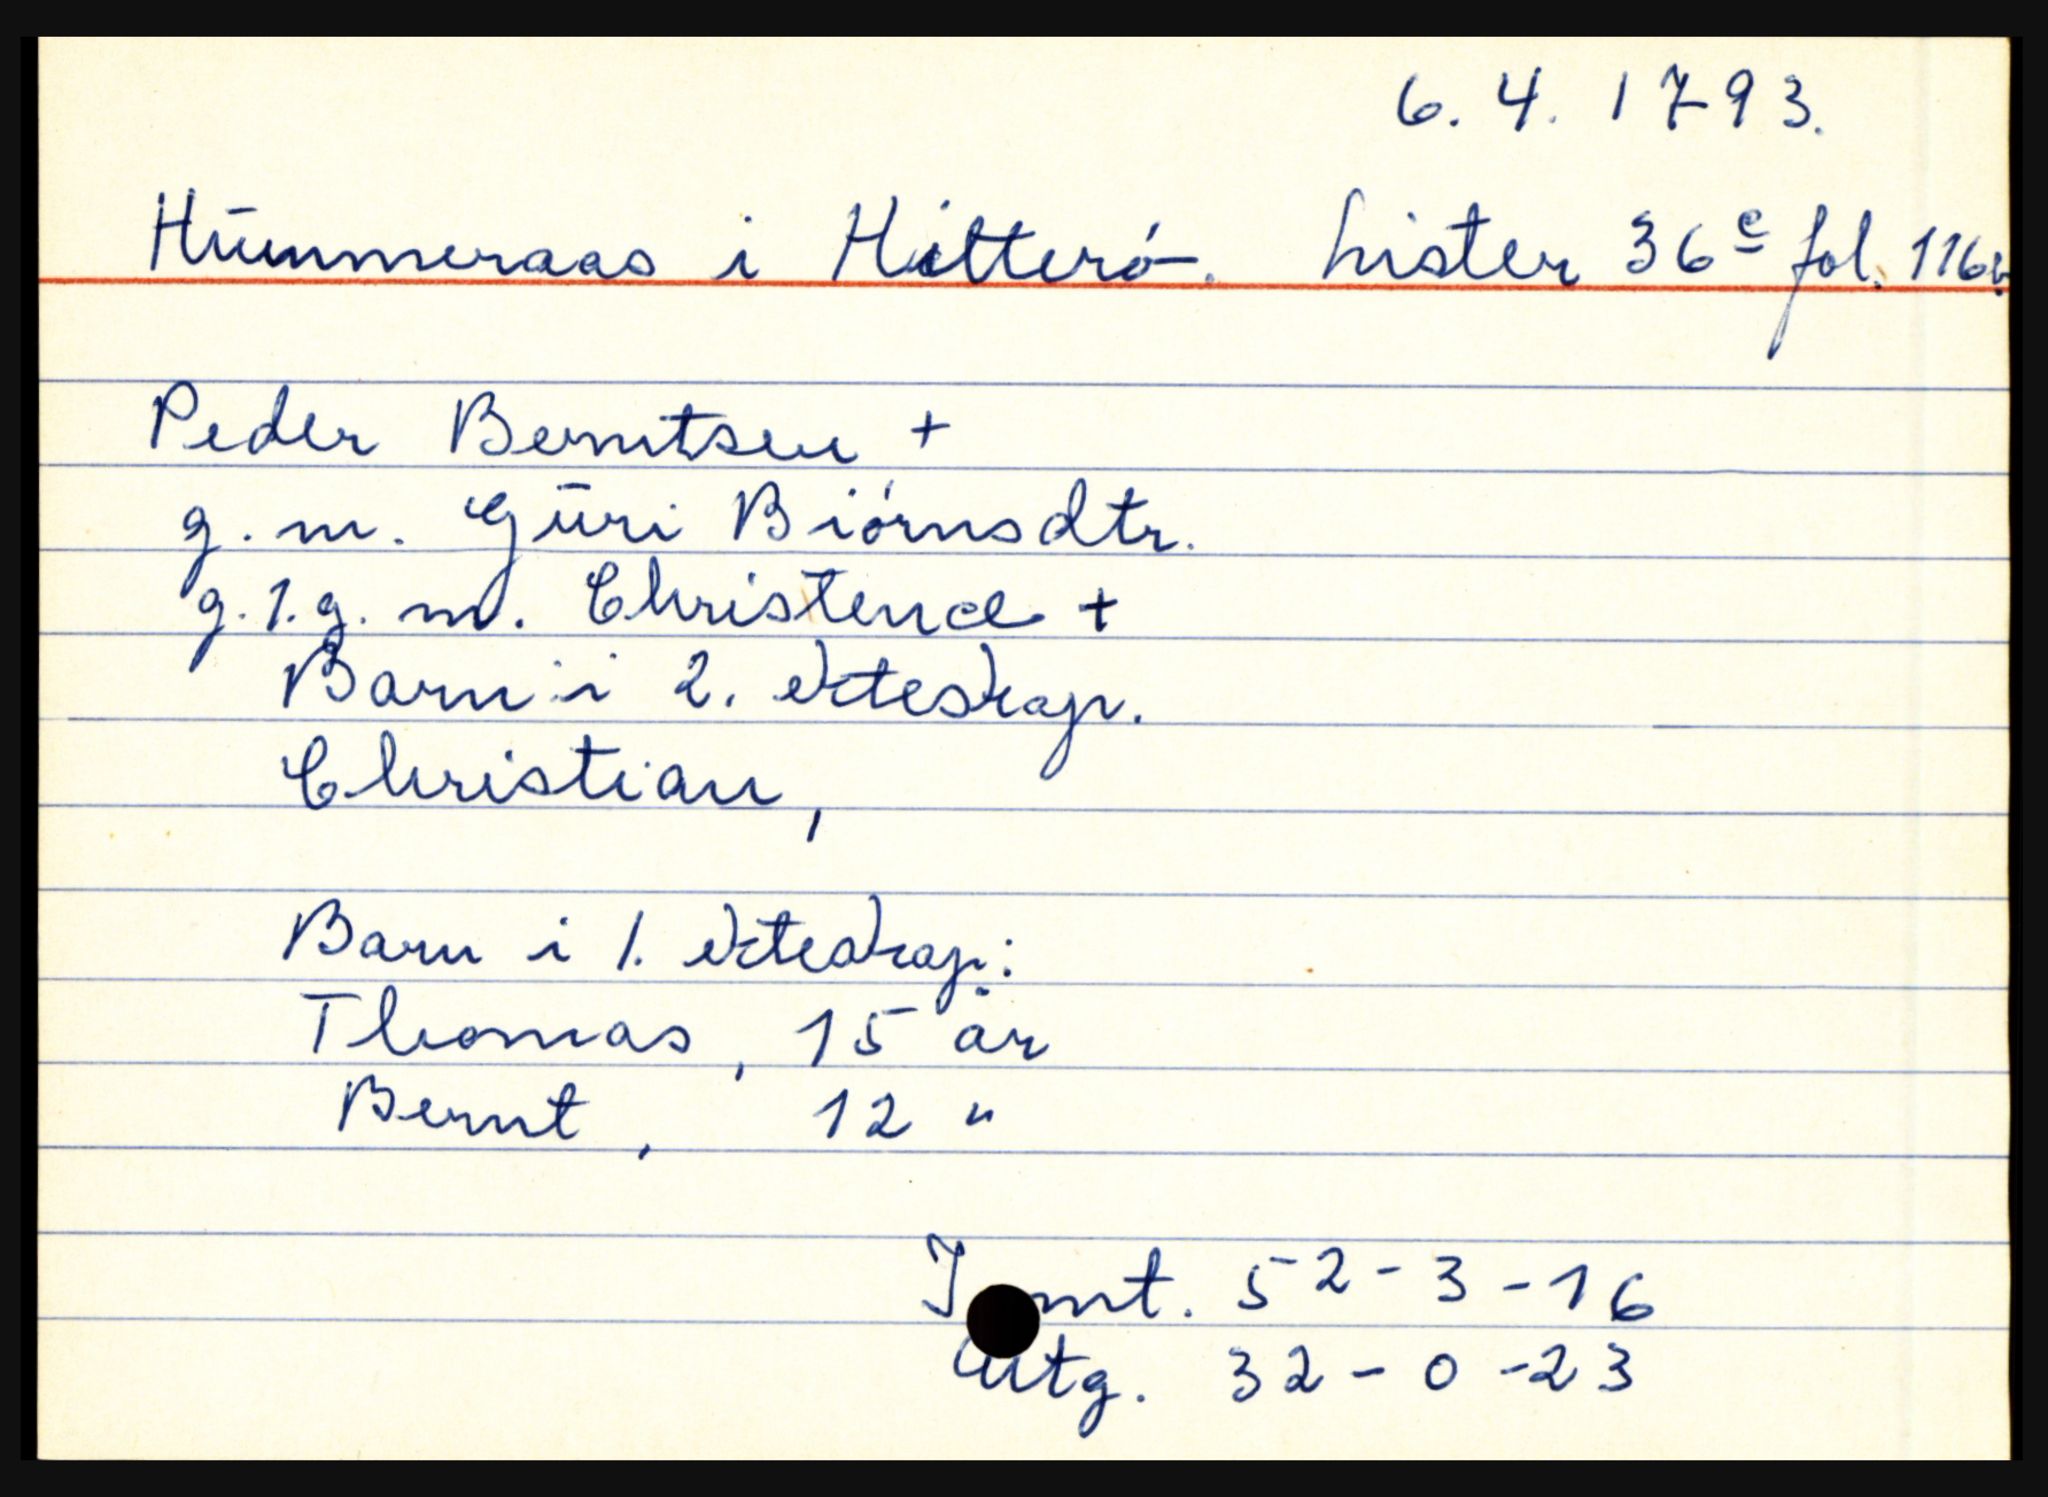 6. 4. 1793.
Hūmmeraas i Hitteró. Lister 36c fol. 116b.
Peder Berntsen +
g. m. Gūri Biórnsdtr.
g. 1. g. m. Christence +
Barn i 2. ekteskap.
Christian,
Barn i 1. ekteskap:
Thomas, 15 år
Bernt, 12 "
Innt. 52 - 3 - 16
Utg. 32 - 0 - 23